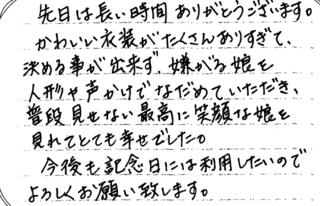 先日は長い時間ありがとうございます。
かわいい衣装がたくさんありすぎて、
決める事が出来ず、嫌がる娘を
人形や声がけでなだめていただき、
普段見せない最高に笑顔な娘を
見れてとても幸せでした。
今後も記念日には利用したいので
よろしくお願い致します。